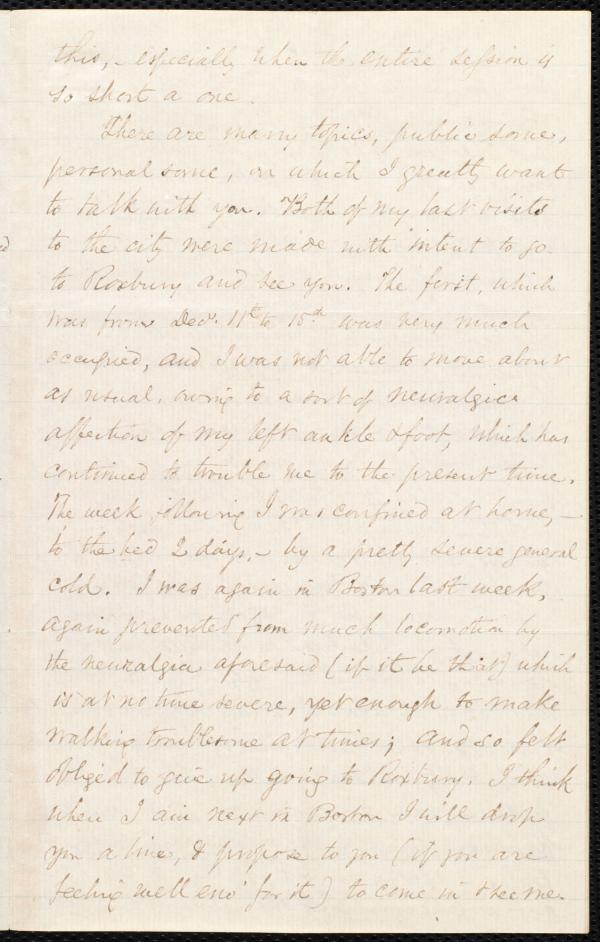 this, - especially when the entire session is
so short a one.
There are many topics, public some,
personal some, on which I greatly want
to talk with you. Both of my last visits
to the city were made with intent to go
to Roxbury and see you. The first, which
was from Dec. 11th to 15th was very much
occupied, and I was not able to move about
as usual, owing to a sort of neuralgic
affection of my left ankle & foot, which has
continued to trouble me to the present time.
The week following I was confined at home, -
to the bed 2 days, - by a pretty severe general
cold. I was again in Boston last week,
again prevented from much locomotion by
the neuralgia aforesaid (if it be that) which
is at no time severe, yet enough to make
walking troublesome at times; and so felt
obliged to give up going to Roxbury. I think
when I am next in Boston I will drop
you a line, & propose to you (if you are
feeling well eno' for it) to come in & see me.